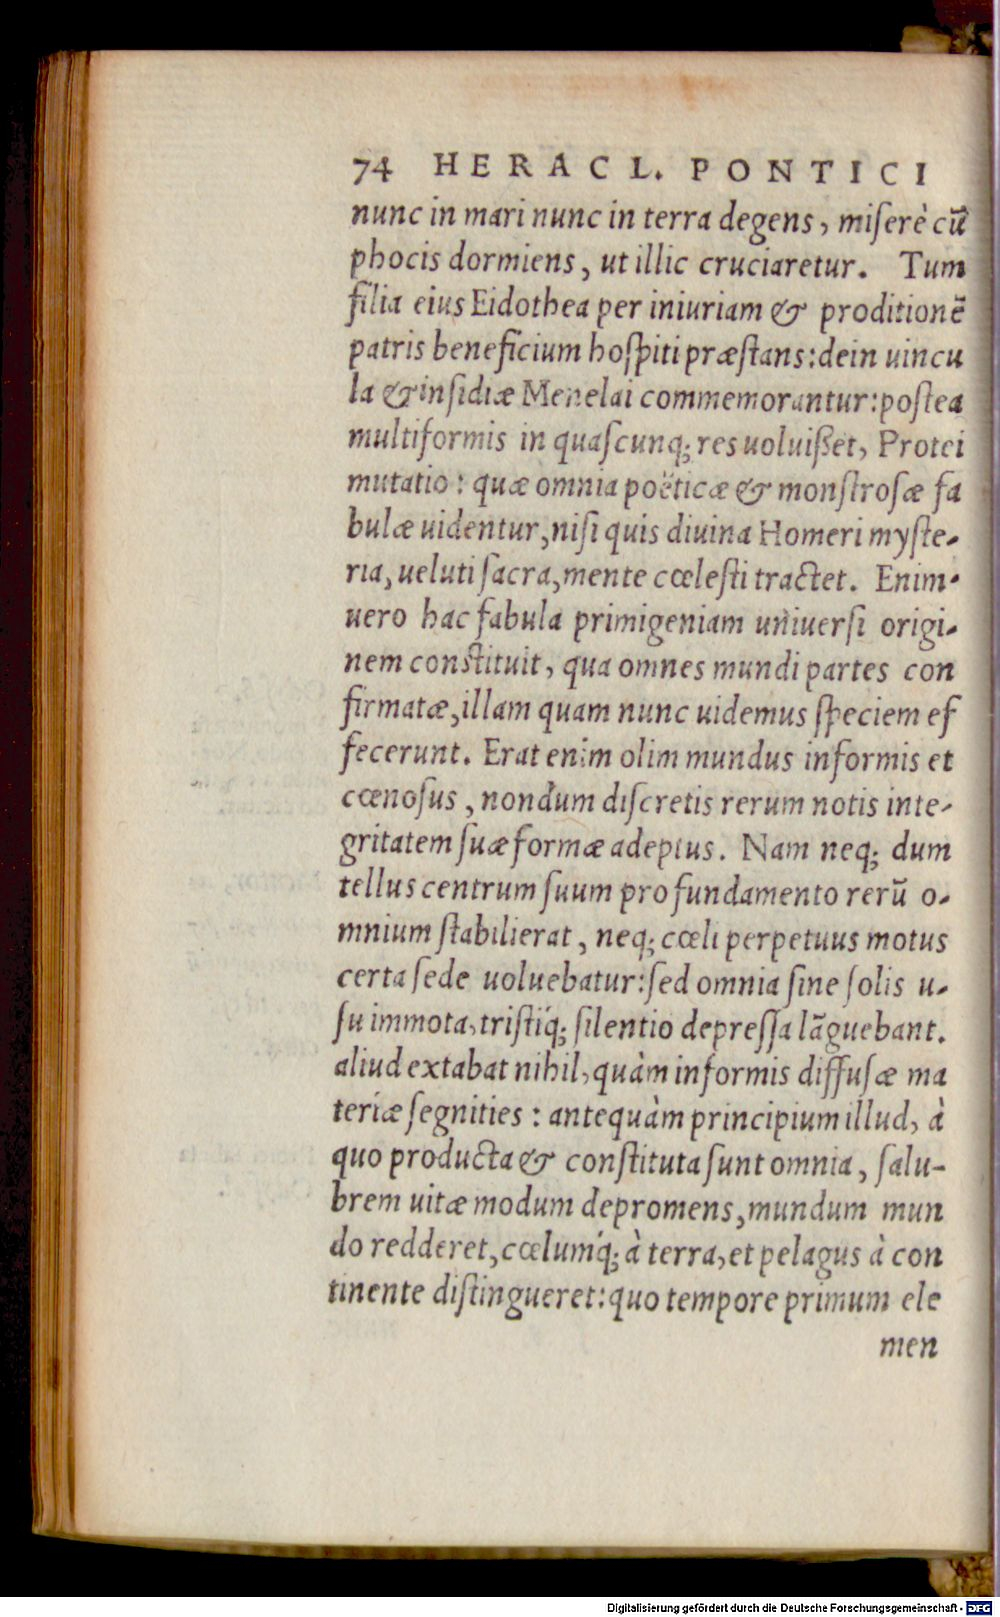 74 HERACL. PONTICI
nunc in mari nunc in terra degens, miſerè cū
phocis dormiens, ut illic cruciaretur. Tum
filia eius Eidothea per iniuriam & proditionē
patris beneficium hoſpiti præſtans: dein uincu
la & inſidiæ Menelai commemorantur: poſtea
multiformis in quaſcunq; res uoluiſſet, Protei
mutatio: quæ omnia poëticæ & monſtroſæ fa
bulæ uidentur, niſi quis diuina Homeri myſte-
ria, ueluti ſacra, mente cœleſti tractet. Enim-
uero hac fabula primigeniam uniuerſi origi-
nem conſtituit, qua omnes mundi partes con
firmatæ, illam quam nunc uidemus ſpeciem ef
fecerunt. Erat enim olim mundus informis et
cœnoſus, nondum diſcretis rerum notis inte-
gritatem ſuæ formæ adeptus. Nam neq; dum
tellus centrum ſuum pro fundamento rerū o-
mnium ſtabilierat, neq; cœli perpetuus motus
certa ſede uoluebatur: ſed omnia ſine ſolis u-
ſu immota, triſtiq́; ſilentio depreſſa lāguebant.
aliud extabat nihil, quàm informis diffuſæ ma
teriæ ſegnities: antequàm principium illud, à
quo producta & conſtituta ſunt omnia, ſalu-
brem uitæ modum depromens, mundum mun
do redderet, cœlumq́; à terra, et pelagus à con
tinente diſtingueret: quo tempore primum ele
men
Digitalisierung gefördert durch die Deutsche Forschungsgemeinschaft - DFG